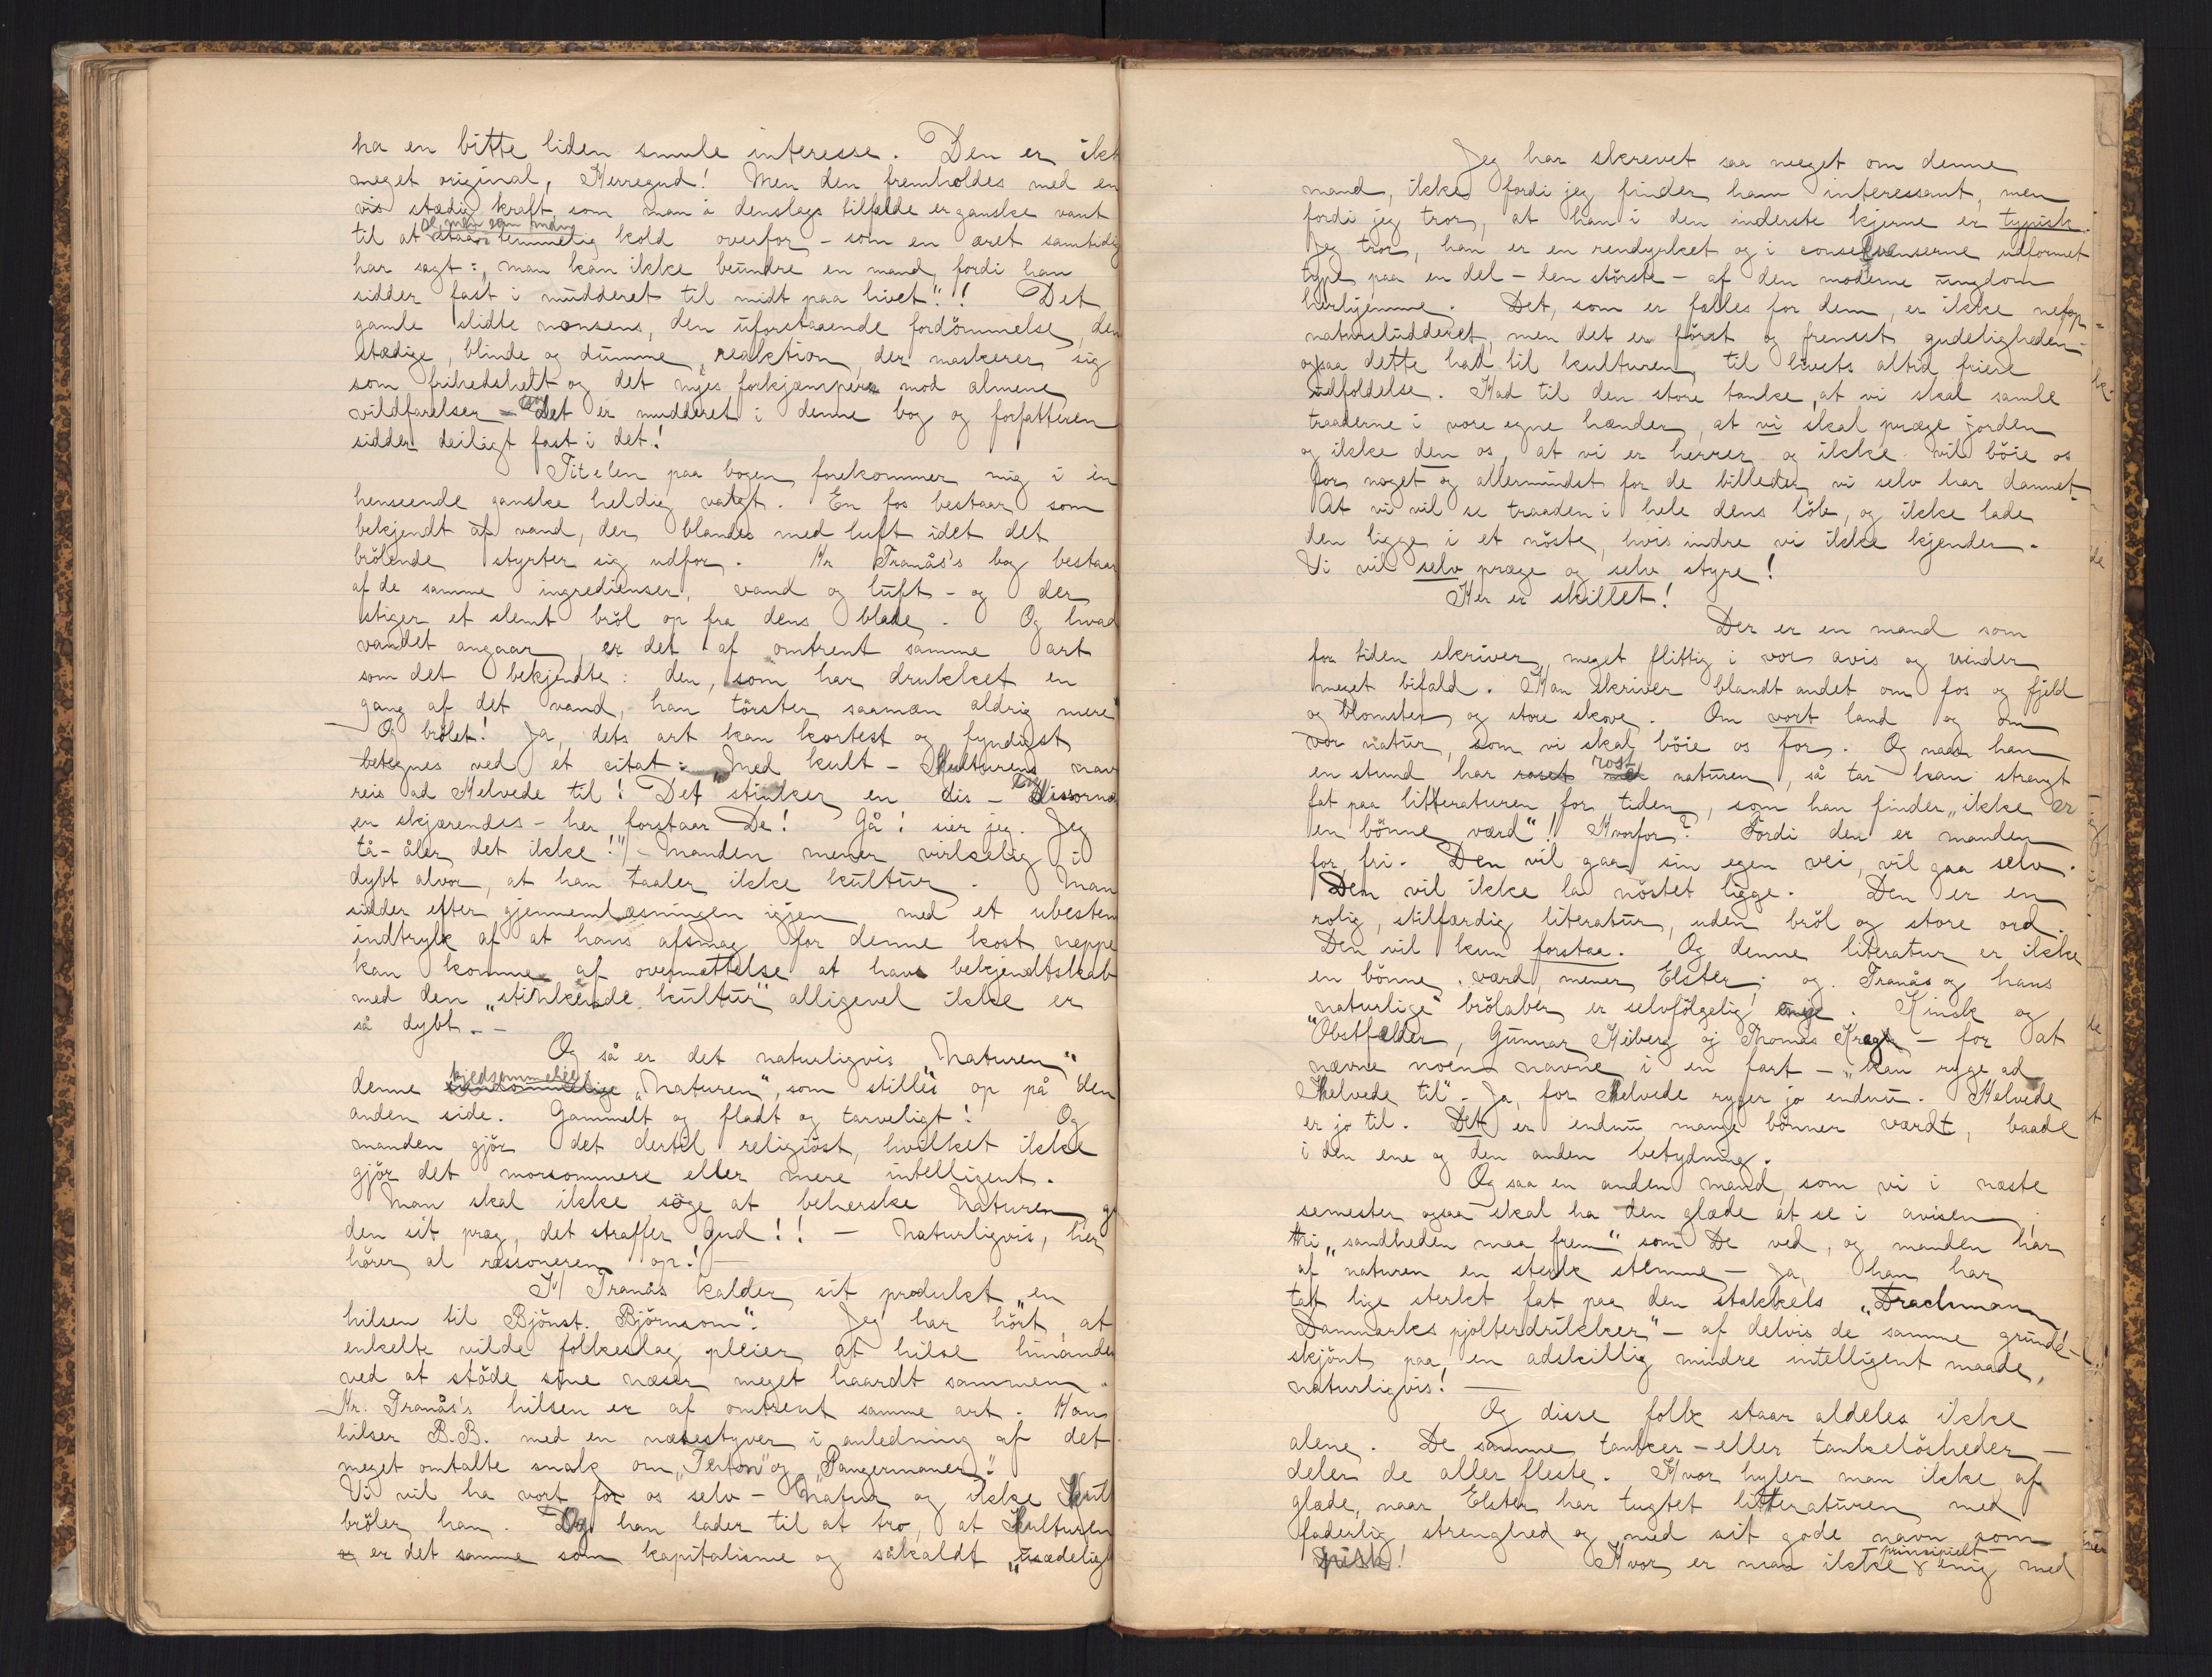 ha en bitte liden smule interesse. Den er ikke
meget original, Herregud! Men den fremholdes med en
vis stædig kraft, som man i denslags tilfælde er ganske vant
til at staa temmelig kold overfor - som en æret samtidig
har sagt: „man kan ikke beundre en mand, fordi han
sidder fast i mudderet til midt paa livet"! Det
gamle slidte nonsens, den uforstaaende fordömmelse, den
stædige, blinde og dumme reaktion, der maskerer sig
som frihedshelt og det nyes forkjæmpere mod almene
vildfarelser - det er mudderet i denne bog og forfatteren
sidder deiligt fast i det!
Titelen paa bogen forekommer mig i én
henseende ganske heldig valgt. En fos bestaar som
bekjendt af vand, der blandes med luft idet det
brölende styrter sig udfor. Hr Tranås's bog bestaar
af de samme ingredienser, vand og luft - og der
stiger et slemt bröl op fra dens blade. Og hvad
vandet angaar, er det af omtrent samme art
som det bekjendte: den, som har drukket en
gang af det vand, han törster saamæn aldrig mere"
- Og brölet! Ja, dets art kan kortest og fyndigst
betegnes ved et citat: „Med kult - Kulturens nav
reis ad Helvede til! Det stinker en dis - Dissorna
en skjærendes - her forstaar De! Gå! sier jeg. Jeg
tå-åler det ikke!" - Manden mener virkelig i
dybt alvor, at han taaler ikke kultur. Man
sidder efter gjennemlæsningen igjen med et ubestem
indtryk af at hans afsmag for denne kost neppe
kan komme af overmættelse at hans bekjendtskab
med den „stinkende kultur" alligevel ikke er
så dybt. -
Og så er det naturligvis „Naturen"
denne kjedsommelige „Naturen", som stilles op på den
anden side. Gammelt og fladt og tarveligt! Og
manden gjör det dertil religiöst, hvilket ikke
gjör det morsommere eller mere intelligent.
Man skal ikke söge at beherske Naturen, gi
den sit præg, det straffer Gud!! - Naturligvis, her
hörer al ræsoneren op! -
Hr Tranås kalder sit produkt „en
hilsen til Bjönst. Björnson". Jeg har hört, at
enkelte vilde folkeslag pleier at hilse hinanden
ved at stöde sine næser meget haardt sammen.
- Hr. Tranås's hilsen er af omtrent samme art. Han
hilser B.B. med en næsestyver i anledning af det
meget omtalte snak om „Terton" og „Pangermaner".
Vi vil ha vort for os selv - Natur og ikke Kult
bröler han. Og han lader til at tro, at Kulturen
er det samme som kapitalisme og såkaldt „usædelig
Jeg har skrevet saa meget om denne
mand, ikke fordi jeg finder ham interessant, men
fordi jeg tror, at han i den inderste kjerne er typisk.
Jeg tror, han er en rendyrket og i consekvenserne udformet
type paa en del - den störste - af den moderne ungdom
herhjemme. Det, som er fælles for dem, er ikke netop
natursludderet, men det er först og fremst gudeligheden -
ogsaa dette had til kulturen, til livets altid friere
udfoldelse. Had til den store tanke, at vi skal samle
traaderne i vore egne hænder, at vi skal præge jorden
og ikke den os, at vi er herrer og ikke vil böie os
for noget og allermindst for de billeder vi selv har dannet.
At vi vil se traaden i hele dens löb, og ikke lade
den ligge i et nöste, hvis indre vi ikke kjender.
Vi vil selv præge og selv styre!
Her er skillet!
Der er en mand som
for tiden skriver meget flittig i vor avis og vinder
meget bifald. Han skriver blandt andet om fos og fjeld
og blomster og store skove. Om vort land og om
vor natur, som vi skal böie os for. Og naar han
en stund har rost naturen, så tar han strengt
fat paa litteraturen for tiden, som han finder „ikke er
en bönne værd"! Hvorfor? Fordi den er manden
for fri. Den vil gaa sin egen vei, vil gaa selv.
Den vil ikke la nöstet ligge. Den er en
rolig, stilfærdig literatur, uden bröl og store ord.
Den vil kun forstaa. Og denne literatur er ikke
en bönne værd, mener Elster; og Tranås og hans
„naturlige" brölaber er selvfölgelig enige. Kinck og
Obstfelder, Gunnar Heiberg og Thomas Krag - for at
nævne noen navne i en fart - „kan ryge ad
Helvede til". Ja, for Helvede ryger jo endnu. Helvede
er jo til. Det er endnu mange bönner værdt, baade
i den ene og den anden betydning.
Og saa en anden mand, som vi i næste
semester ogsaa skal ha den glæde at se i avisen;
thi „sandheden maa frem" som De ved, og manden har
af naturen en sterk stemme - Ja, han har
tat lige sterkt fat paa den stakkels „Drachman
Danmarks pjolterdrikker" - af delvis de samme grunde -
skjönt paa en adskillig mindre intelligent maade,
naturligvis! -
Og disse folk staar aldeles ikke
alene. De samme tanker - eller tankelösheder -
deler de aller fleste. Hvor hyler man ikke af
glæde, naar Elster har tugtet litteraturen med
faderlig strenghed og med sit gode navn som
pisk! Hvor er man ikke principielt enig med